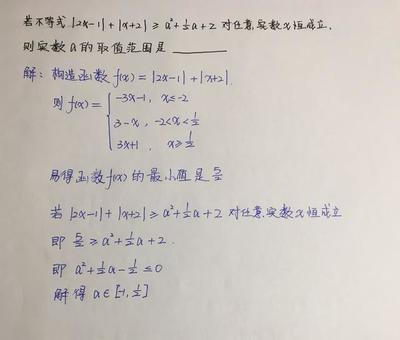 若不等式 |2x-1| + |x+2| ≥ a²+½a+2 对任意实数x恒成立,
则实数a的取值范围是 ________
解: 构造函数 f(x) = |2x-1| + |x+2|.
则 f(x) = { -3x-1, x≤-2
3-x, -2<x<½
3x+1, x≥½
易得函数f(x)的最小值是 5/2
若 |2x-1| + |x+2| ≥ a²+½a+2 对任意实数x恒成立
即 5/2 ≥ a²+½a+2.
即 a²+½a-½ ≤0
解得 a∈[-1, ½]